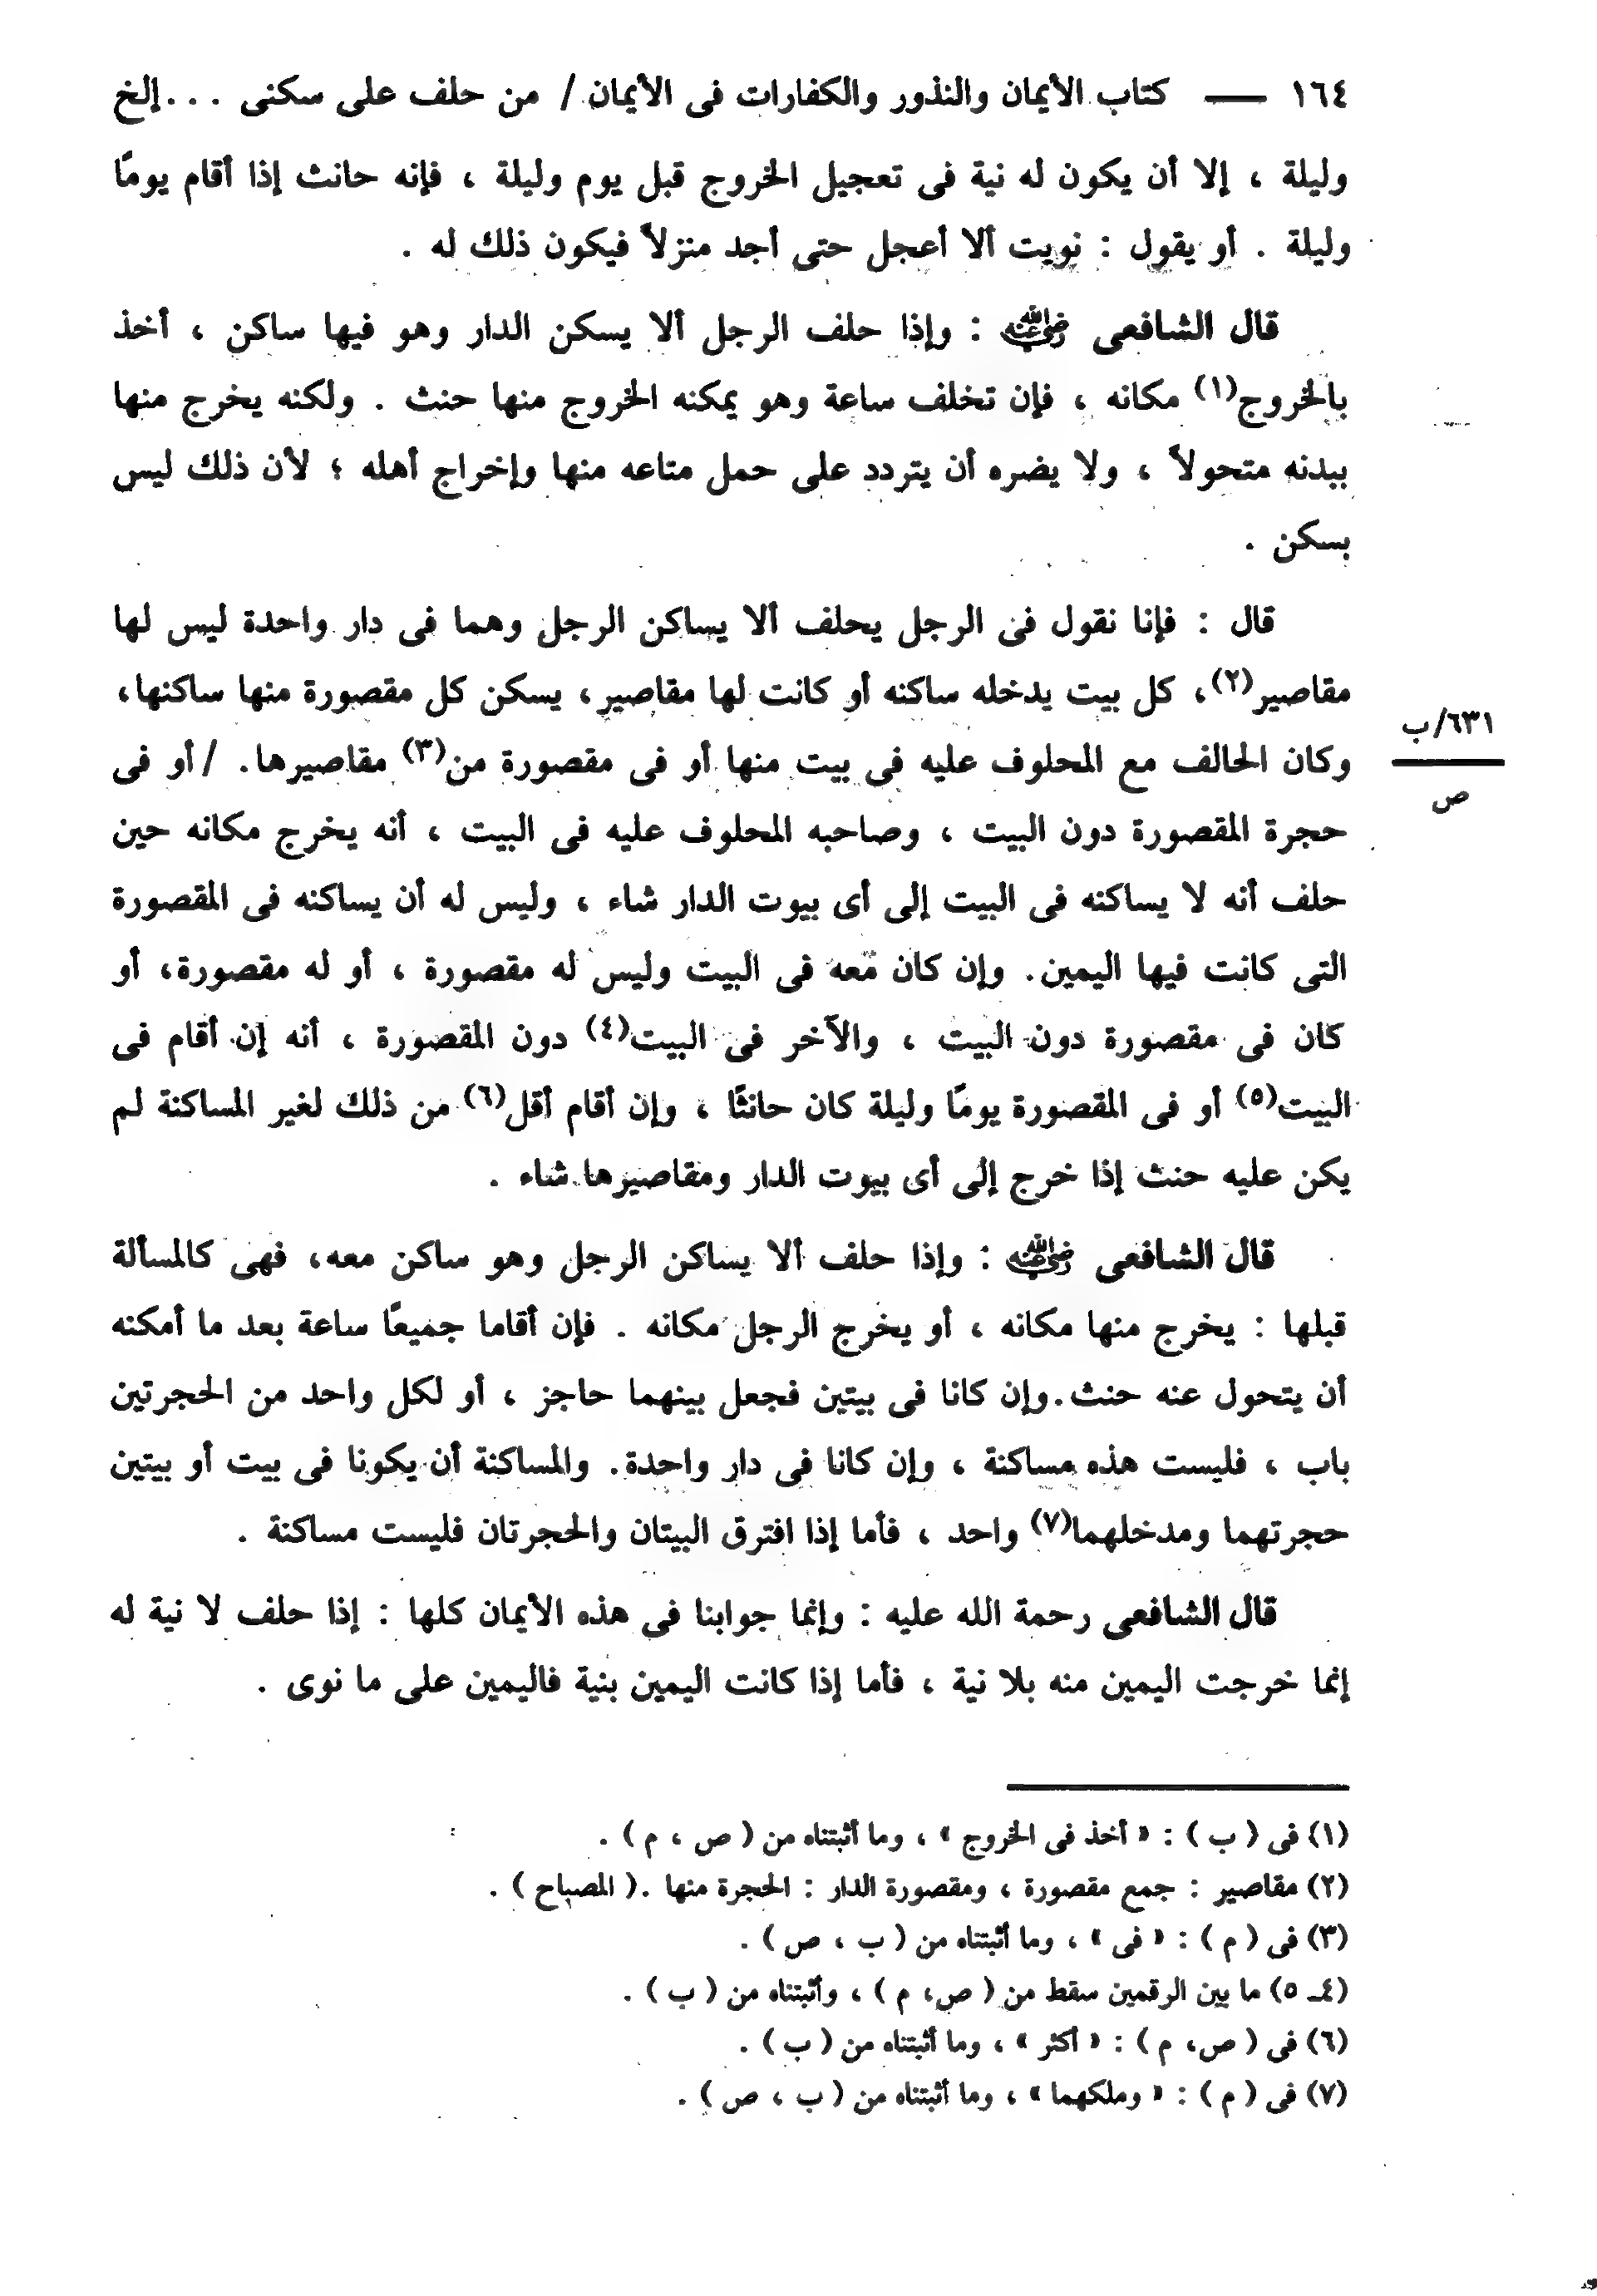 ١٦٤ ـــ كتاب الأيمان والنذور والكفارات فى الأيمان / من حلف على سكنى . . . إلخ
وليلة ، إلا أن يكون له نية فى تعجيل الخروج قبل يوم وليلة ، فإنه حانث إذا أقام يومًا
وليلة . أو يقول : نويت ألا أعجل حتى أجد منزلاً فيكون ذلك له .
قال الشافعى رضي الله عنه : وإذا حلف الرجل ألا يسكن الدار وهو فيها ساكن ، أخذ
بالخروج(١) مكانه ، فإن تخلف ساعة وهو يمكنه الخروج منها حنث . ولكنه يخرج منها
ببدنه متحولاً ، ولا يضره أن يتردد على حمل متاعه منها وإخراج أهله ؛ لأن ذلك ليس
بسكن .
قال : فإنا نقول فى الرجل يحلف ألا يساكن الرجل وهما فى دار واحدة ليس لها
مقاصير(٢)، كل بيت يدخله ساكنه أو كانت لها مقاصير، يسكن كل مقصورة منها ساكنها،
وكان الحالف مع المحلوف عليه فى بيت منها أو فى مقصورة من(٣) مقاصيرها. / أو فى
٦٣١/ب
ص
حجرة المقصورة دون البيت ، وصاحبه المحلوف عليه فى البيت ، أنه يخرج مكانه حين
حلف أنه لا يساكنه فى البيت إلى أى بيوت الدار شاء ، وليس له أن يساكنه فى المقصورة
التى كانت فيها اليمين. وإن كان معه فى البيت وليس له مقصورة ، أو له مقصورة، أو
كان فى مقصورة دون البيت ، والآخر فى البيت(٤) دون المقصورة ، أنه إن أقام فى
البيت(٥) أو فى المقصورة يومًا وليلة كان حانثًا ، وإن أقام أقل(٦) من ذلك لغير المساكنة لم
يكن عليه حنث إذا خرج إلى أى بيوت الدار ومقاصيرها شاء .
قال الشافعى رضي الله عنه : وإذا حلف ألا يساكن الرجل وهو ساكن معه، فهى كالمسألة
قبلها : يخرج منها مكانه ، أو يخرج الرجل مكانه . فإن أقاما جميعًا ساعة بعد ما أمكنه
أن يتحول عنه حنث.وإن كانا فى بيتين فجعل بينهما حاجز ، أو لكل واحد من الحجرتين
باب ، فليست هذه مساكنة ، وإن كانا فى دار واحدة. والمساكنة أن يكونا فى بيت أو بيتين
حجرتهما ومدخلهما(٧) واحد ، فأما إذا افترق البيتان والحجرتان فليست مساكنة .
قال الشافعى رحمة الله عليه : وإنما جوابنا فى هذه الأيمان كلها : إذا حلف لا نية له
إنما خرجت اليمين منه بلا نية ، فأما إذا كانت اليمين بنية فاليمين على ما نوى .
(١) فى ( ب ) : « أخذ فى الخروج » ، وما أثبتناه من ( ص ، م ) .
(٢) مقاصير : جمع مقصورة ، ومقصورة الدار : الحجرة منها .( المصباح ) .
(٣) فى ( م ) : « فى » ، وما أثبتناه من ( ب ، ص ) .
(٤ـ ٥) ما بين الرقمين سقط من ( ص، م ) ، وأثبتناه من ( ب ) .
(٦) فى ( ص، م ) : « أكثر » ، وما أثبتناه من ( ب ) .
(٧) فى ( م ) : « وملكهما » ، وما أثبتناه من ( ب ، ص ) .